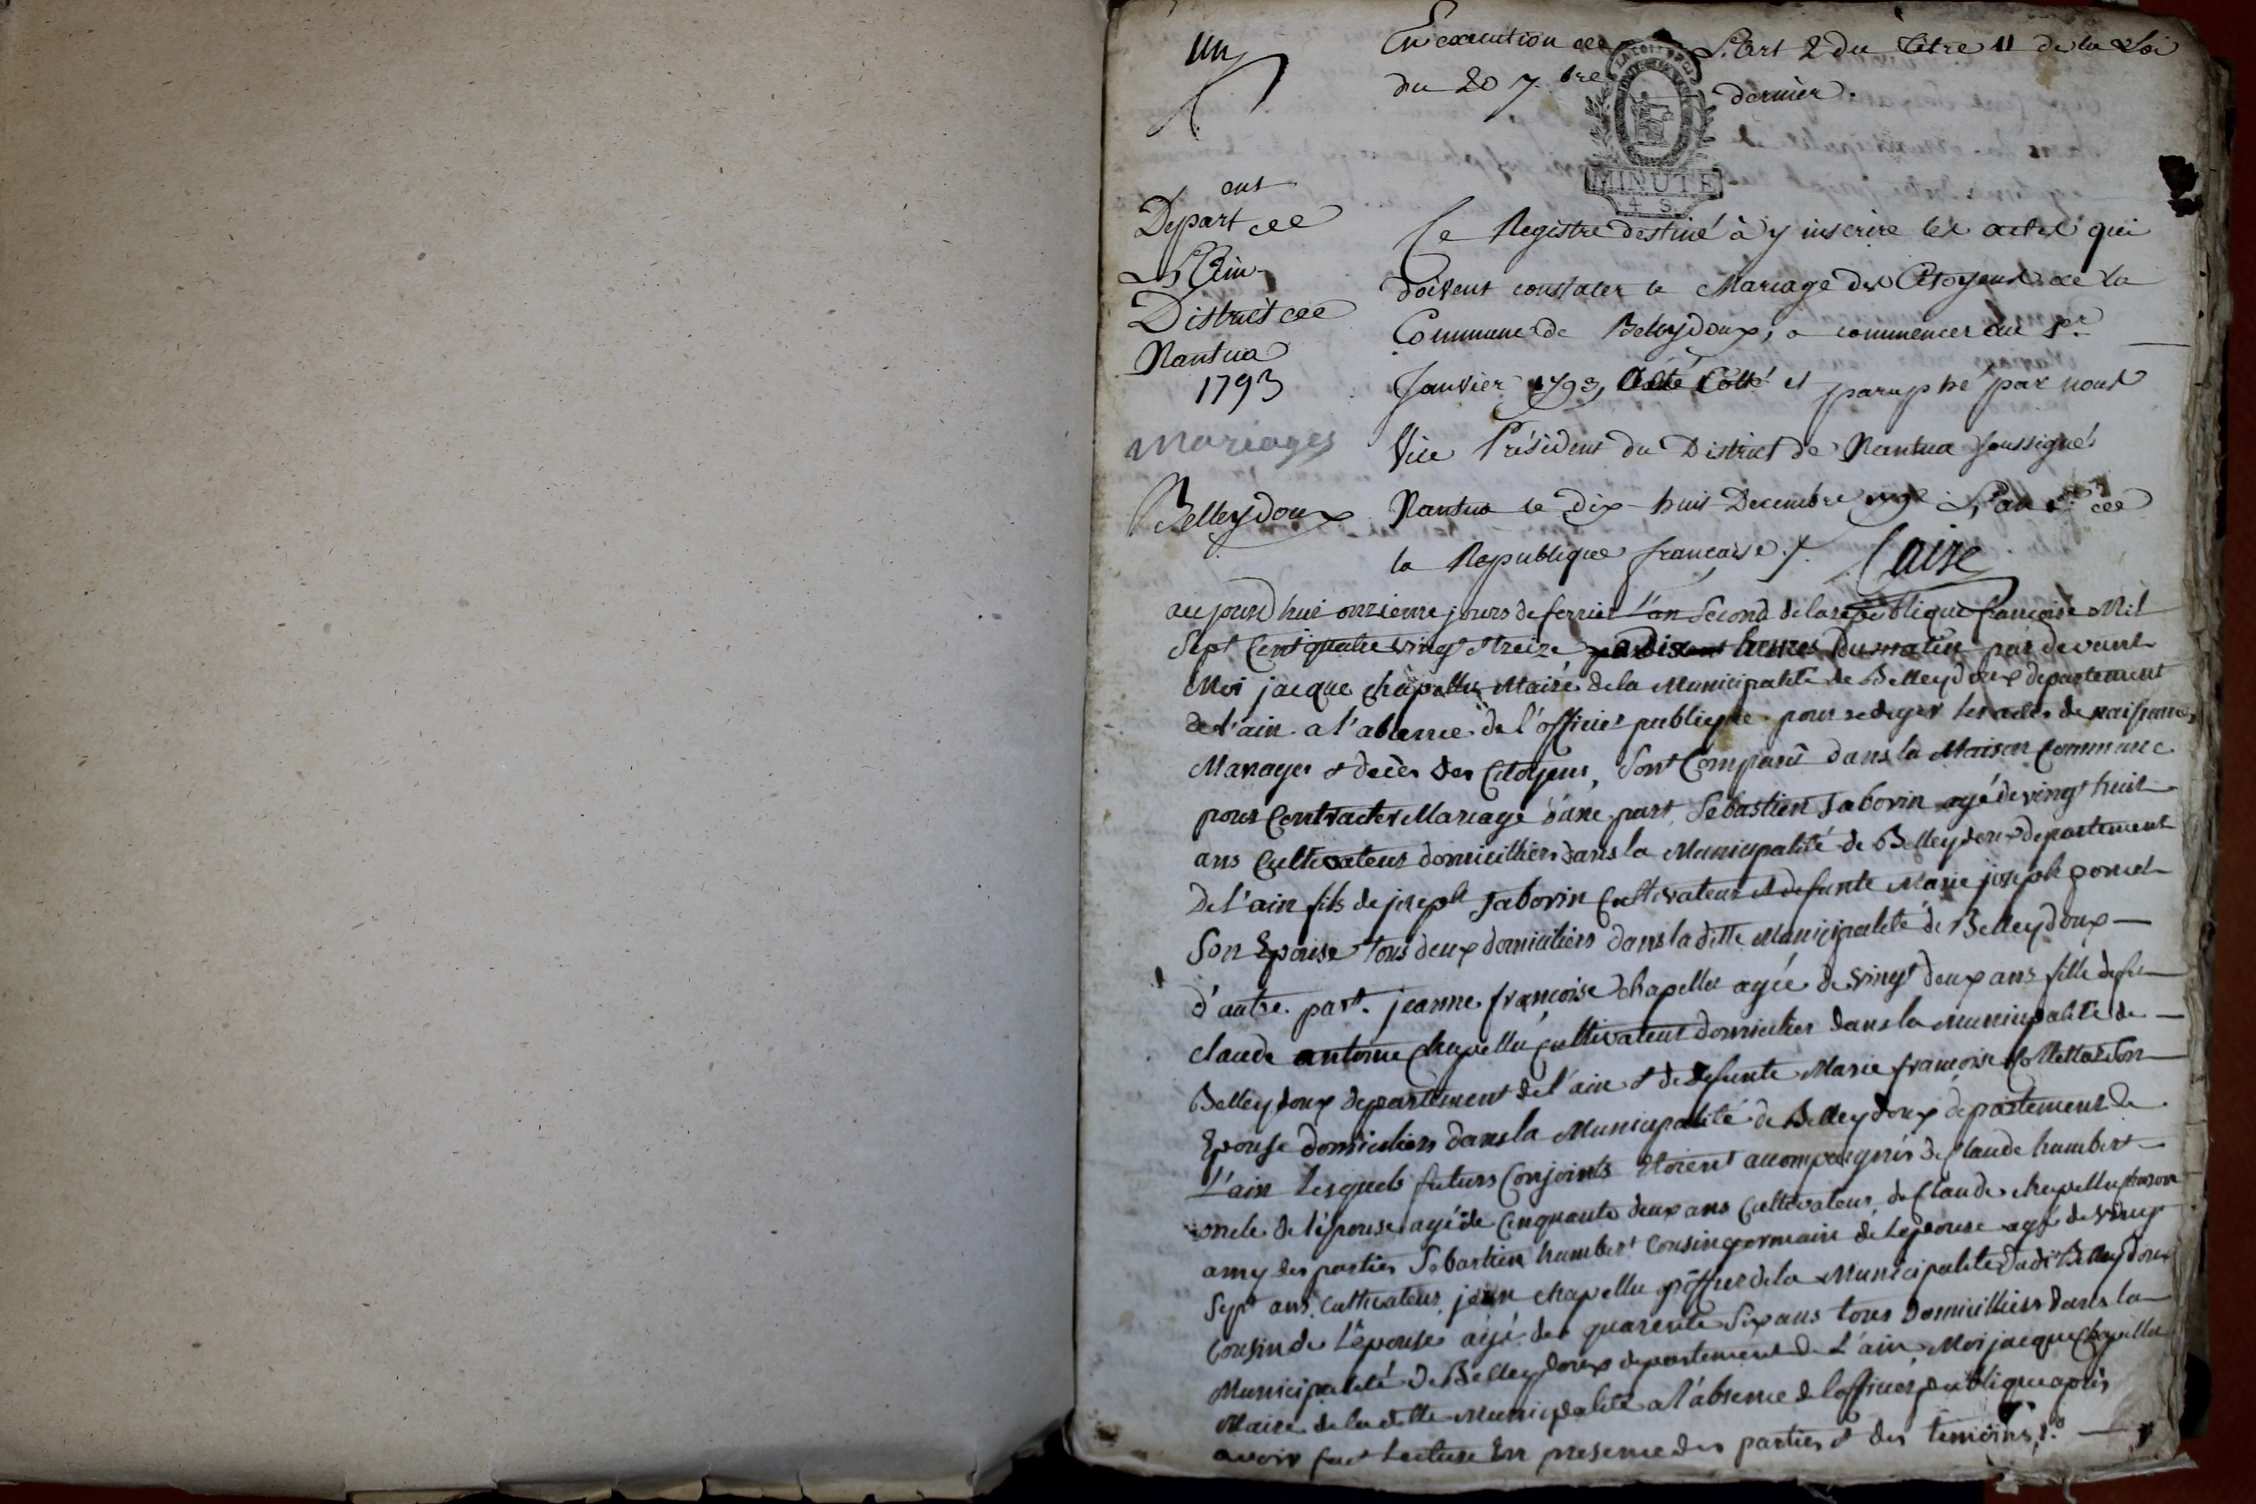 un
En execution de L'art 2 du titre 11 de la Loi
du 20 7.bre dernier.
LA LOI
MINUTE
4 S.
Depart.ent de
L'Ain
District de
Nantua
1793
Mariages
Belleydoux
Ce Registre destiné à y inscrire les actes qui
doivent constater le Mariage des Citoyens de la
Commune de Belleydoux, a commencer au 1.er
Janvier 1793, a été Cotté et paraphé par nous
Vice Président du District de Nantua soussigné
Nantua le dix-huit Decembre 1792 L'an 1.er de
la Republique française ./.
aujourd'hui onzieme jours de ferrier l'an Second de la republique françoise Mil
Sept Cent quatre vingt treize a dix heures du matin par devant
Moi jacque chapellu Maire de la Municipalité de Belleydoux departement
de l'ain a l'absence de l'officier publique pour rediger les actes de naissance,
Mariages et decès des Citoyens, Sont Comparû dans la Maison Commune
pour Contracter Mariage d'une part, Sebastien Tabovin agé de vingt huit
ans Cultivateur domicillier dans la Municipalité de Belleydoux departement
De l'ain fils de joseph Tabovin Cultivateur et defunte Marie joseph poncet
Son Epouse tous deux domiciliers dans la ditte Municipalité de Belleydoux
d'autre part. jeanne françoise chapellu agée de vingt deux ans fille de feu
claude antoine chapellu Cultivateur domicilier dans la Municipalité de
Belleydoux departement de l'ain et de defunte Marie françoise Collettaz Son
Epouse domiciliers dans la Municipalité de Belleydoux departement de
L'ain Lesquels futurs Conjoints etoient accompagnés de Claude humbert
oncle de l'épouse agé de Cinquante deux ans Cultivateur, de Claude chapellu
amy des parties Sebastien humbert Cousin germain de Lepouse agé de vingt
Sept ans Cultivateur, jean chapellu officier de la Municipalité dudit Belleydoux
Cousin de L'épouse agé de quarente Six ans tous domicilliers dans la
Municipalité de Belleydoux departement de L'ain, Moi jacque Chapellu
Maire de la ditte Municipalité a l'absence de l'officier publique après
avoir fait Lecture En presence des parties et des temoins,